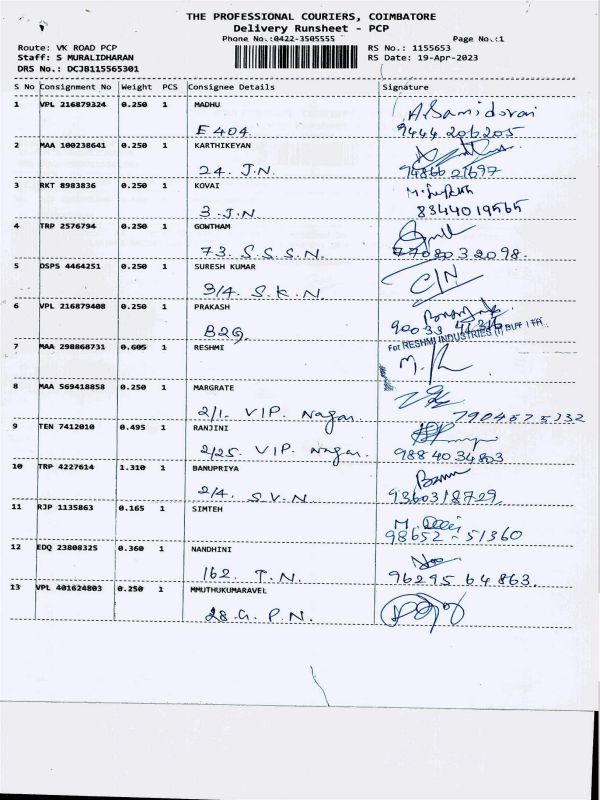 THE PROFESSIONAL COURIERS, COIMBATORE
Delivery Runsheet - PCP
Phone No.:0422-3505555
Page No.:1
Route: VK ROAD PCP
RS No.: 1155653
Staff: S MURALIDHARAN
RS Date: 19-Apr-2023
DRS No.: DCJB115565301
S No Consignment No Weight PCS Consignee Details Signature
1 VPL 216879324 0.250 1 MADHU A. Samidorai
E 404. 9444 206205
2 MAA 100238641 0.250 1 KARTHIKEYAN
24. J.N. 9486621697
3 RKT 8983836 0.250 1 KOVAI
3. J.N. 8344019565
4 TRP 2576794 0.250 1 GOWTHAM
73. S.S.S.N. 7708032098.
5 DSPS 4464251 0.250 1 SURESH KUMAR C/N
3/4. S.K.N.
6 VPL 216879408 0.250 1 PRAKASH
B2G. 90033
7 MAA 298868731 0.605 1 RESHMI For RESHMI INDUSTRIES (I) PVT LTD.,
8 MAA 569418858 0.250 1 MARGRATE
2/1. VIP. Nagar.
9 TEN 7412010 0.495 1 RANJINI
2/25. VIP. Nagar. 9884034803
10 TRP 4227614 1.310 1 BANUPRIYA
2/4. S.V.N. 9360318729.
11 RJP 1135863 0.165 1 SIMTEH
98652-51360
12 EDQ 23808325 0.360 1 NANDHINI
162. T.N. 9629564863.
13 VPL 401624803 0.250 1 MMUTHUKUMARAVEL
28. G. P.N.